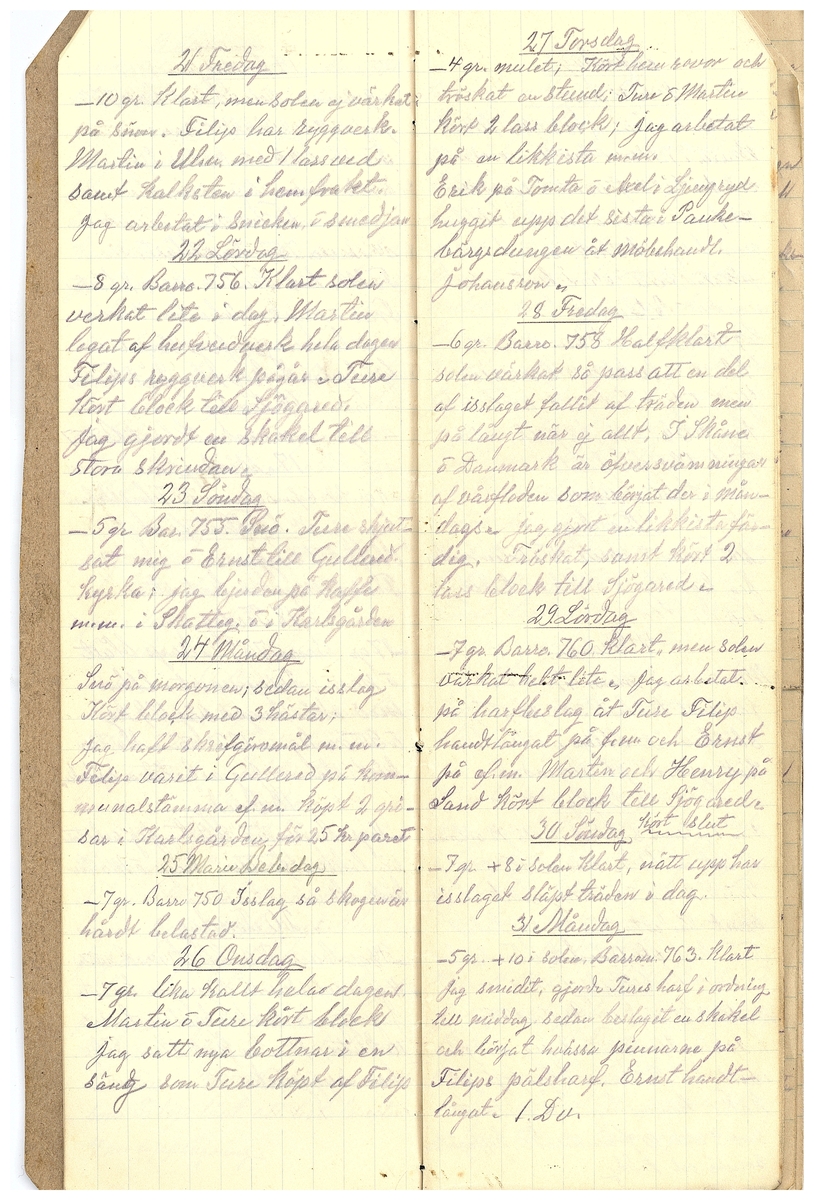 21 Fredag
—10 gr. Klart, men solen ej värkat
på snön. Filip har ryggverk.
Martin i Ulhn. med 1 lass ved
samt kalksten i hemfrakt.
Jag arbetat i snicken ō smedjan
22 Lördag
—8 gr. Barro. 756. Klart solen
verkat lite i dag. Martin
legat af hufvudverk hela dagen
Filips ryggverk pågår. Ture
Kört block till Sjögared.
Jag gjordt en skakel till
stora skrindan.
23 Söndag
—5 gr. Bar. 755. Snö. Ture skjut-
sat mig ō Ernst till Gullered
kyrka; jag bjuden på kaffe
m.m. i Skatteg. ō i Karlsgården
24 Måndag
Snö på morgonen; sedan isslag
Kört block med 3 hästar;
Jag haft skrifgöromål m.m.
Filip varit i Gullered på kom-
munalstämma ef.m. köpt 2 gri-
sar i Karlsgården för 25 kr paret
25 Marie Beb.dag
—7 gr. Barro 750 Isslag så skogen är
hårdt belastad.
26 Onsdag
—7 gr. lika kallt hela dagen.
Martin ō Ture kört block
Jag satt nya bottnar i en
säng som Ture köpt af Filip
27 Torsdag
—4 gr. mulet; Kört hem rovor och
tröskat en stund; Ture ō Martin
kört 2 lass block; jag arbetat
på en likkista m.m.
Erik på Tomta ō Axel i Ljungryd
huggit upp det sista i Panke-
bärgsdungen åt möbehandl.
Johansson.
28 Fredag
—6 gr. Barro. 758 Halfklart
solen värkat så pass att en del
af isslaget fallit af träden men
på långt när ej allt. I Skåne
ō Danmark är öfversvämningar
af vårfloden som börjat der i Mån-
dags. Jag gjort en likkista fär-
dig. Tröskat, samt kört 2
lass block till Sjögared.
29 Lördag
—7 gr. Barro. 760 klart, men solen
värkat helt lite. Jag arbetat
på harfbeslag åt Ture Filip
handtlångat på f.m. och Ernst
på ef.m. Martin och Henry på
Sand kört block till Sjögared.
30 Söndag kört slut
—7 gr +8 i solen klart, nätt upp har
isslaget släpt träden i dag.
31 Måndag
—5 gr. +10 i solen. Barrom. 763. Klart
Jag smidit, gjorde Tures harf i ordning
till middag, sedan beslagit en skakel
och börjat hvässa pinnarne på
Filips pälsharf. Ernst handt-
långat. 1. Du.